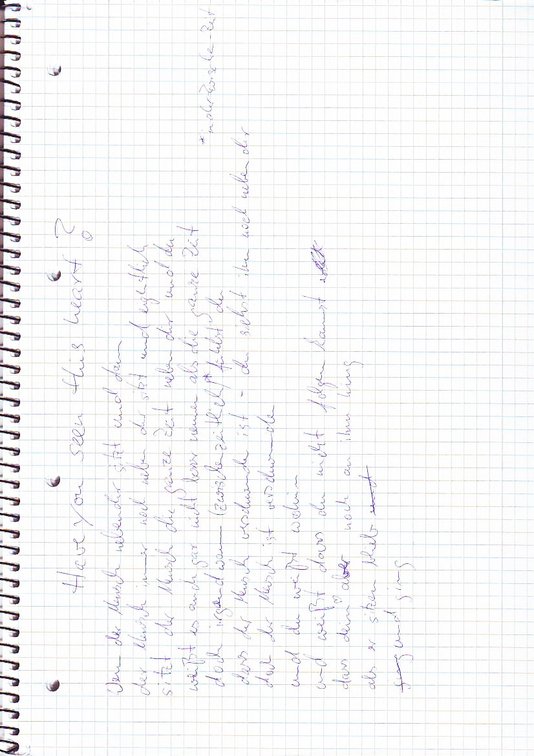 Have you seen this heart?
Wenn der Mensch neben dir sitzt und dann
der Mensch immer noch neben dir sitzt und eigentlich
sitzt der Mensch die ganze Zeit neben dir und du
weißt es auch gar nicht besser wenn als die ganze Zeit
doch irgendwann (zwischenzeitlich)* fühlst du
dass der Mensch verschwunden ist - du siehst ihn noch neben dir
doch der Mensch ist verschwunden
und du weißt wohin
und weißt dass du nicht folgen kannst
dass dein ♡ aber noch an ihm hing
als er stehen blieb
und ging
*in der Zwische-Zeit